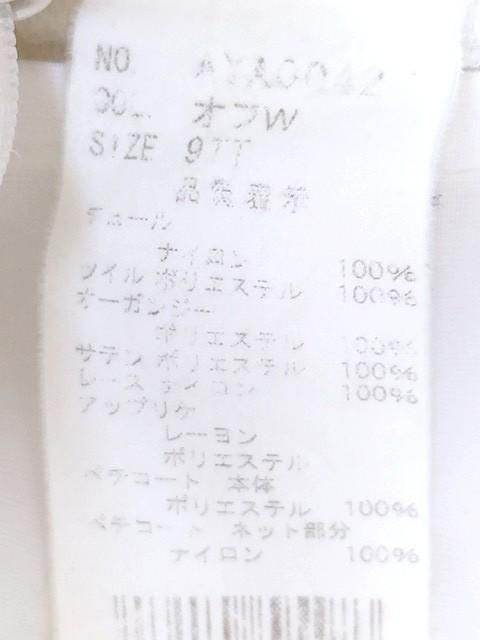 NO. AYA0042
COL. オフW
SIZE 9TT
品質表示
チュール
ナイロン 100%
ツイル ポリエステル 100%
オーガンジー
ポリエステル 100%
サテン ポリエステル 100%
レース ナイロン 100%
アップリケ
レーヨン
ポリエステル
ペチコート 本体
ポリエステル 100%
ペチコート ネット部分
ナイロン 100%